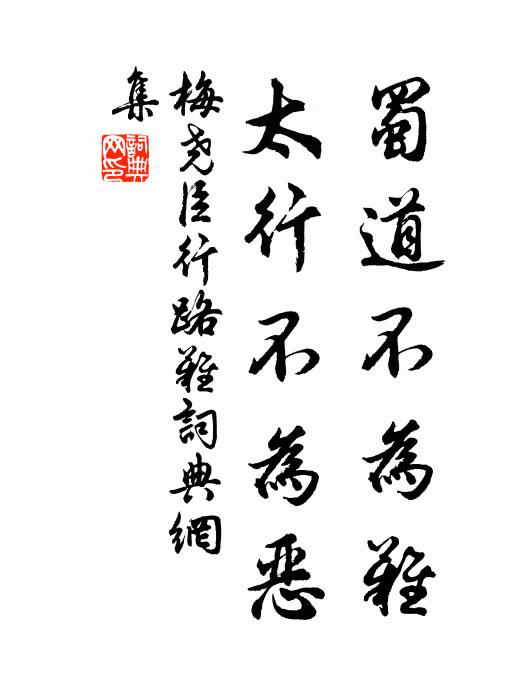 蜀道不為難
太行不為惡
梅堯臣行路難詞典網
集
詞典網印